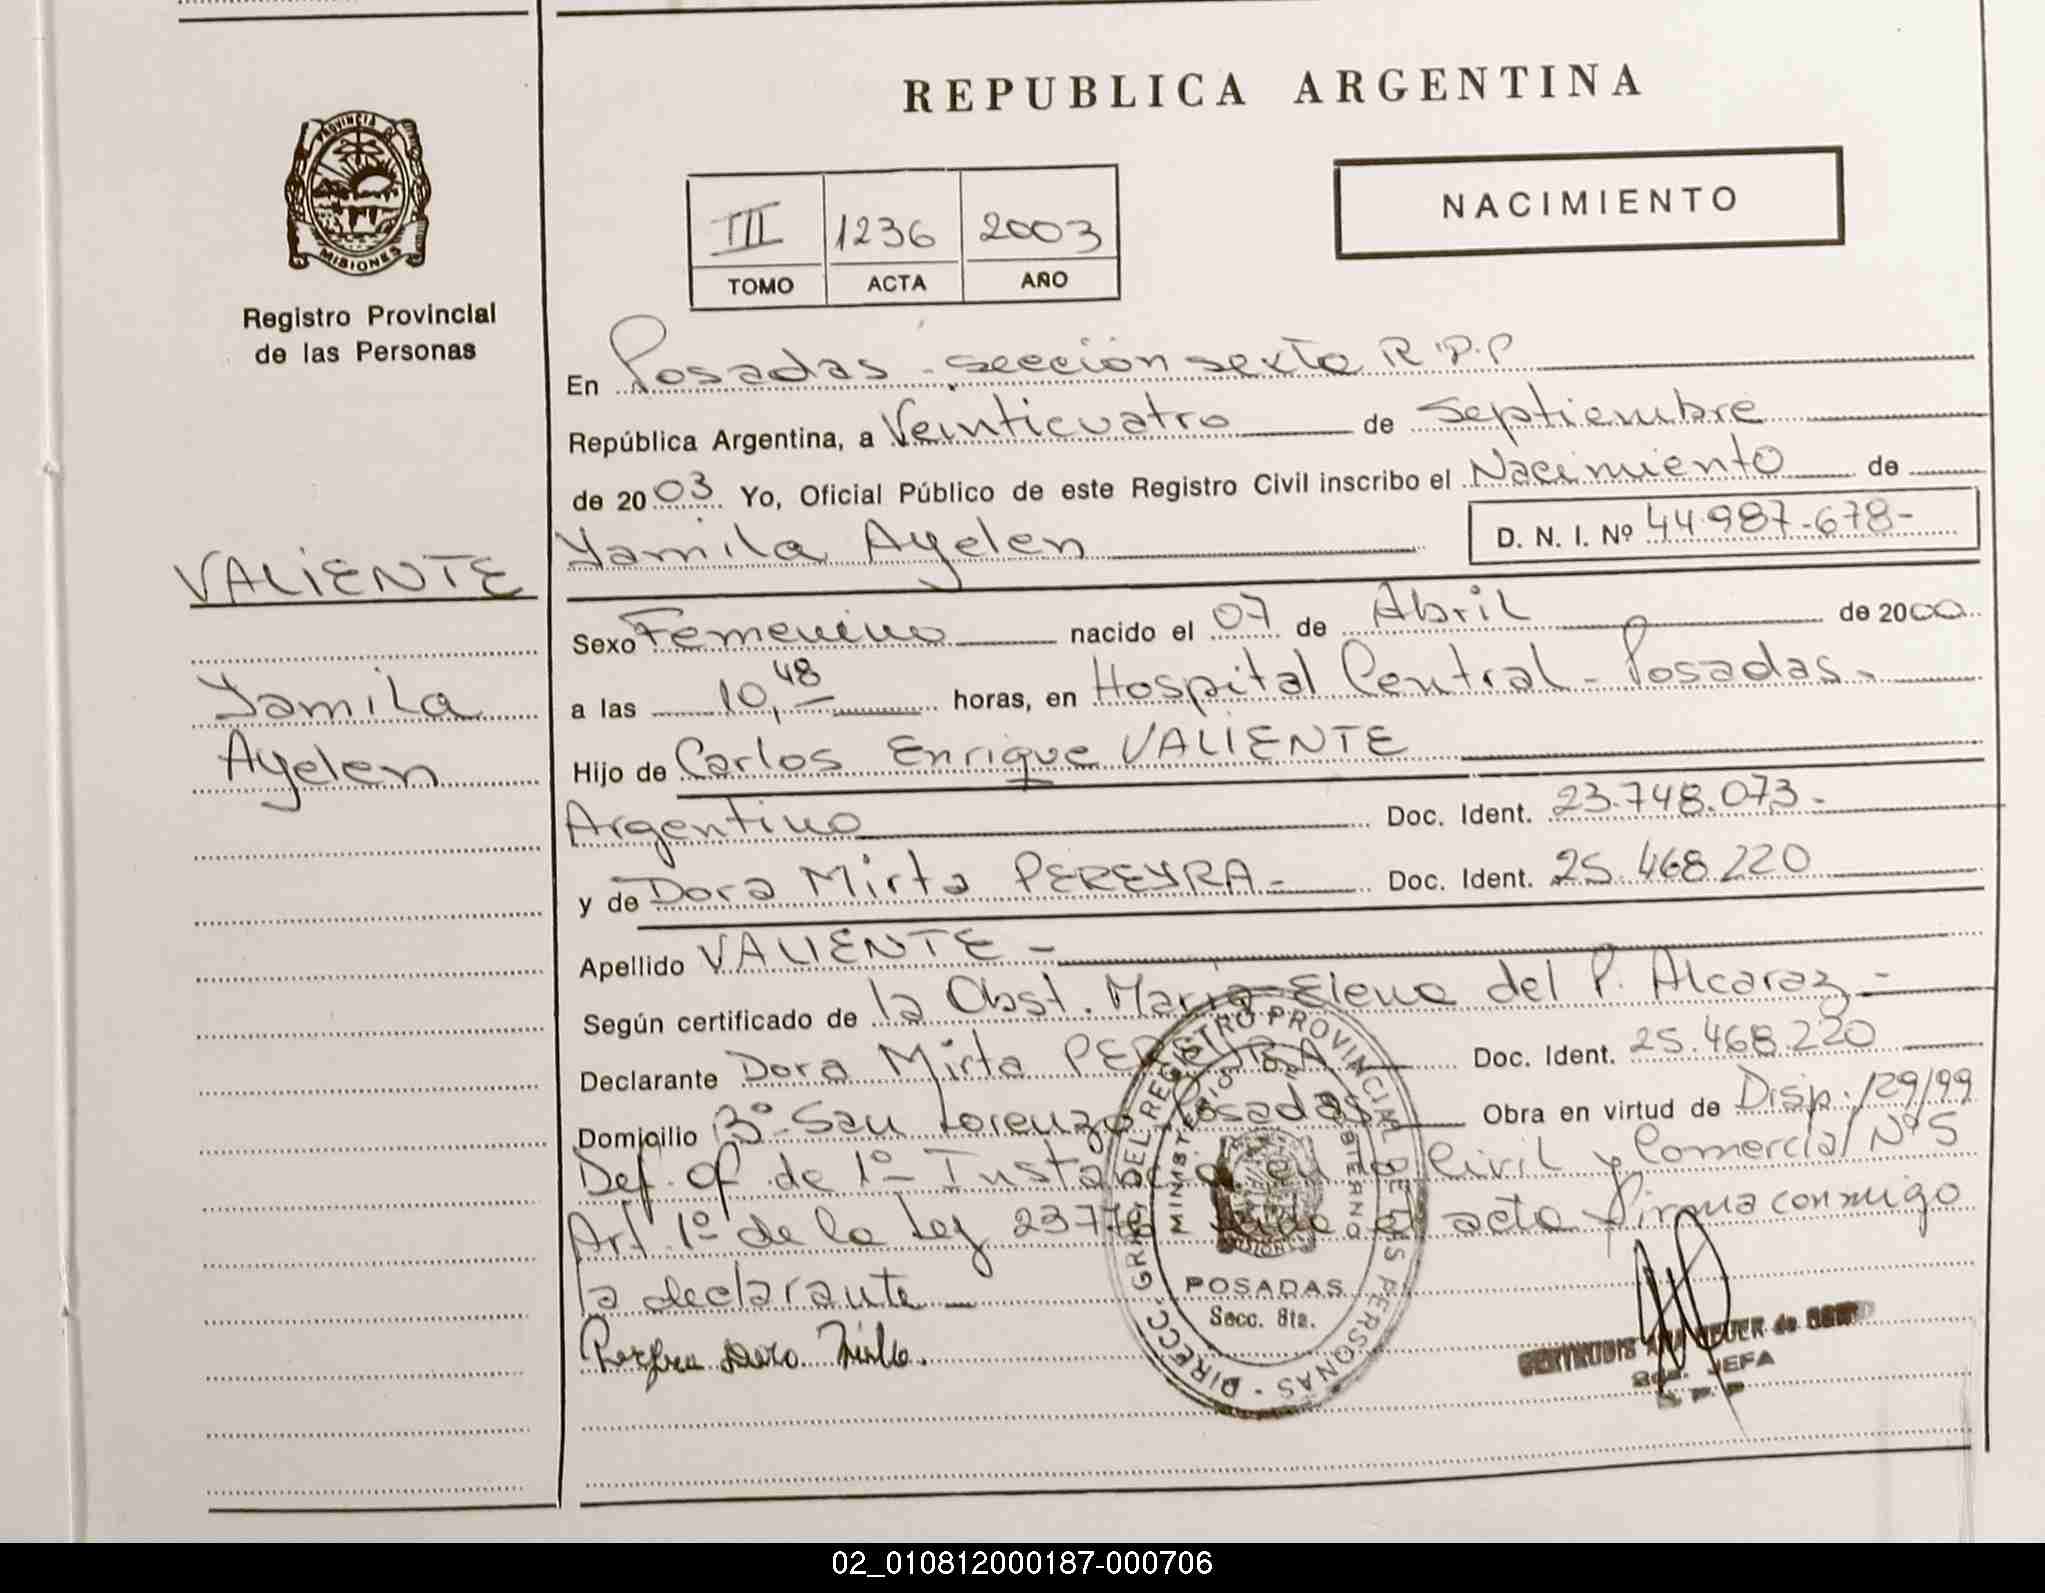 REPUBLICA ARGENTINA
PROVINCIA DE
MISIONES
Registro Provincial
de las Personas
III 1236 2003
TOMO ACTA AÑO
NACIMIENTO
En Posadas - sección sexta R.P.P
República Argentina, a Veinticuatro de Septiembre
de 2003. Yo, Oficial Público de este Registro Civil inscribo el Nacimiento de
Yamila Ayelen D. N. I. Nº 44.987.678-
VALIENTE
Yamila
Ayelen
Sexo Femenino nacido el 07 de Abril de 2000
a las 10,48 horas, en Hospital Central - Posadas.-
Hijo de Carlos Enrique VALIENTE
Argentino Doc. Ident. 23.748.073.-
y de Dora Mirta PEREYRA.- Doc. Ident. 25.468.220
Apellido VALIENTE -
Según certificado de la Obst. María Elena del P. Alcaraz -
Declarante Dora Mirta PEREYRA Doc. Ident. 25.468.220
Domicilio Bº San Lorenzo Posadas Obra en virtud de Disp. 129/99
Def. Of. de 1º Instancia en lo Civil y Comercial Nº 5
Art. 1º de la Ley 23776 el acta firma conmigo
la declarante -
DIRECC. GRAL. DEL REGISTRO PROVINCIAL DE LAS PERSONAS
MINISTERIO DE GOBIERNO
MISIONES
POSADAS
Secc. 8ta.
JEFA
02_010812000187-000706